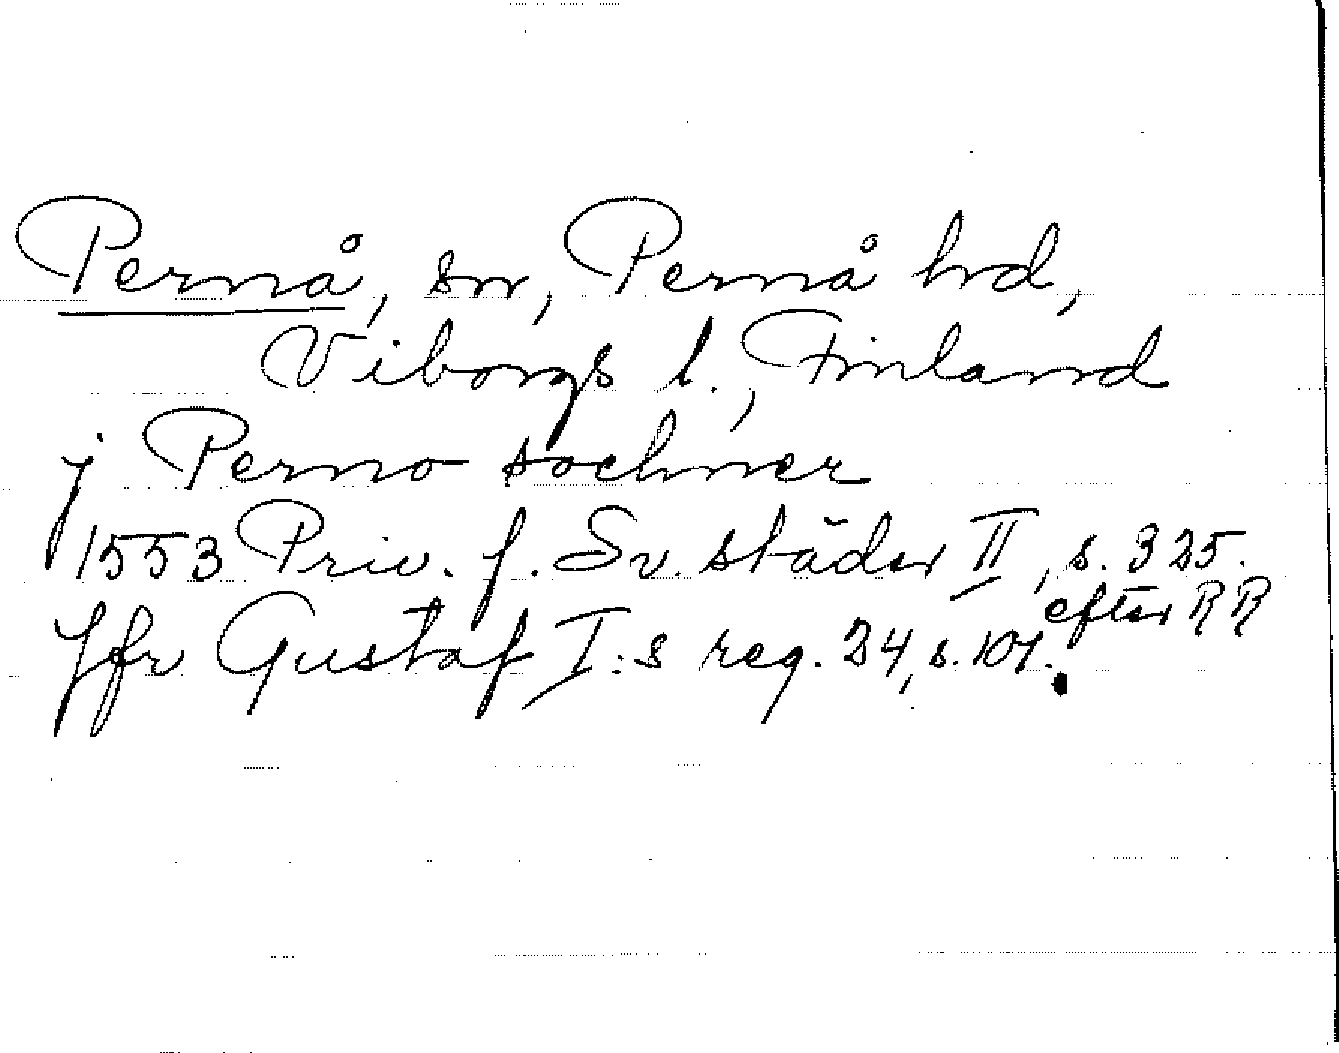 Pernå, sn, Pernå hd,
Viborgs l., Finland
j Perno sochner
1553 Priv. f. Sv. städer II, s. 325.
efter RR
Jfr Gustaf I:s reg. 24, s. 101.